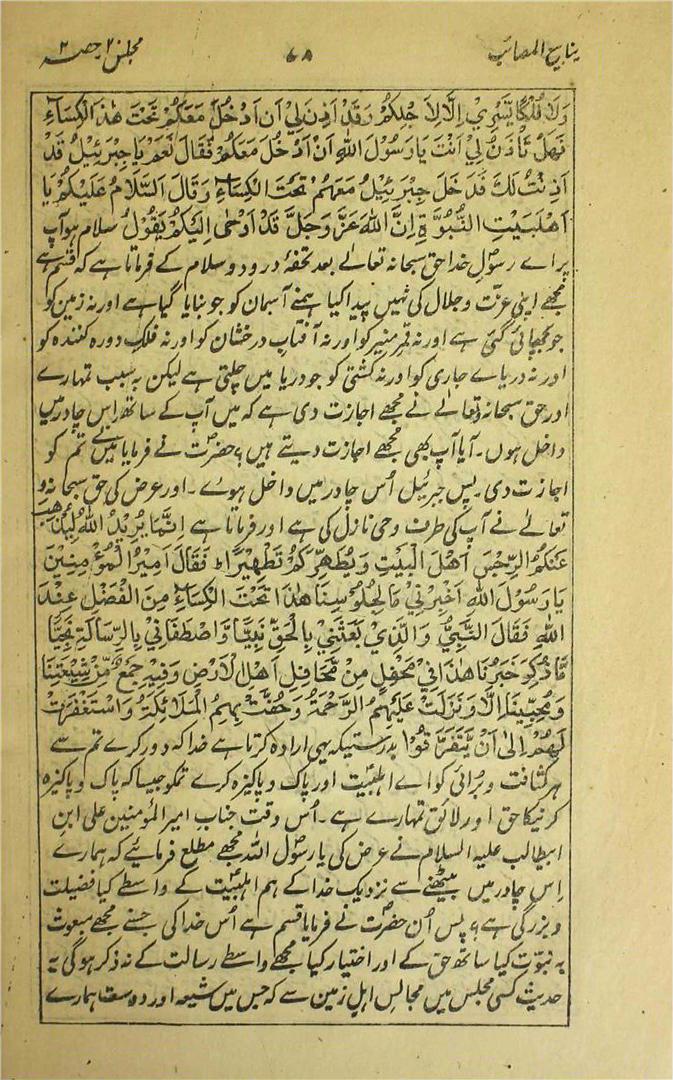 ینابیع المصائب ۶۸ مجلس ۲ حصہ ۲
وَلَا فُلْكًا يَسْرِيْ اِلَّا لِاَجْلِكُمْ وَقَدْ اَذِنَ لِيْ اَنْ اَدْخُلَ مَعَكُمْ تَحْتَ هٰذَا الْكِسَآءِ
فَهَلْ تَأْذَنُ لِيْ اَنْتَ يَا رَسُوْلَ اللهِ اَنْ اَدْخُلَ مَعَكُمْ فَقَالَ نَعَمْ يَا جِبْرَئِيْلُ قَدْ
اَذِنْتُ لَكَ فَدَخَلَ جِبْرَئِيْلُ مَعَهُمْ تَحْتَ الْكِسَآءِ وَقَالَ اَلسَّلَامُ عَلَيْكُمْ يَا
اَهْلَبَيْتِ النُّبُوَّةِ اِنَّ اللهَ عَزَّ وَجَلَّ قَدْ اَوْحٰى اِلَيْكُمْ يَقُوْلُ سلام ہو آپ
پر اے رسول خدا حق سبحانہ تعالےٰ بعد تحفۂ درود و سلام کے فرماتا ہے کہ قسم ہے
مجھے اپنی عزت و جلال کی نہیں پیدا کیا ہمنے آسمان کو جو بنایا گیا ہے اور نہ زمین کو
جو بچھائی گئی ہے اور نہ قمر منیر کو اور نہ آفتاب درخشان کو اور نہ فلک دورہ کنندہ کو
اور نہ دریاے جاری کو اور نہ کشتی کو جو دریا میں چلتی ہے لیکن بہ سبب تمہارے
اور حق سبحانہ وتعالےٰ نے مجھے اجازت دی ہے کہ میں آپ کے ساتھ اس چادر میں
داخل ہوں۔ آیا آپ بھی مجھے اجازت دیتے ہیں؟ حضرت نے فرمایا میں نے تم کو
اجازت دی۔ پس جبرئیل اُس چادر میں داخل ہوئے۔ اور عرض کی حق سبحانہ و
تعالےٰ نے آپ کی طرف وحی نازل کی ہے اور فرماتا ہے اِنَّمَا يُرِيْدُ اللهُ لِيُذْهِبَ
عَنْكُمُ الرِّجْسَ اَهْلَ الْبَيْتِ وَيُطَهِّرَكُمْ تَطْهِيْرًا ط فَقَالَ اَمِيْرُ الْمُؤْمِنِيْنَ
يَا رَسُوْلَ اللهِ اَخْبِرْنِيْ مَا لِجُلُوْسِنَا هٰذَا تَحْتَ الْكِسَآءِ مِنَ الْفَضْلِ عِنْدَ
اللهِ فَقَالَ النَّبِيُّ وَالَّذِيْ بَعَثَنِيْ بِالْحَقِّ نَبِيًّا وَّاصْطَفَانِيْ بِالرِّسَالَةِ نَجِيًّا
مَّا ذُكِرَ خَبَرُنَا هٰذَا فِيْ مَحْفِلٍ مِنْ مَّحَافِلِ اَهْلِ الْاَرْضِ وَفِيْهِ جَمْعٌ مِّنْ شِيْعَتِنَا
وَمُحِبِّيْنَا اِلَّا وَنَزَلَتْ عَلَيْهِمُ الرَّحْمَةُ وَحُفَّتْ بِهِمُ الْمَلَائِكَةُ وَاسْتَغْفَرَتْ
لَهُمْ اِلٰى اَنْ يَّتَفَرَّقُوْا بدرستیکہ یہی ارادہ کرتا ہے خدا کہ دور کرے تم سے
ہر کثافت و برُائی کو اے اہلبیت اور پاک و پاکیزہ کرے تمکو جیسا کہ پاک و پاکیزہ
کرنیکا حق اور لائق تمہارے ہے۔ اُس وقت جناب امیر المؤمنین علی ابن
ابیطالب علیہ السلام نے عرض کی یا رسول اللہ مجھے مطلع فرمائیے کہ ہمارے
اِس چادر میں بیٹھنے سے نزدیک خدا کے ہم اہلبیت کے واسطے کیا فضیلت
و بزرگی ہے؟ پس اُن حضرت نے فرمایا قسم ہے اُس خدا کی جسنے مجھے مبعوث
بہ نبوت کیا ساتھ حق کے اور اختیار کیا مجھے واسطے رسالت کے نہ ذکر ہوگی یہ
حدیث کسی مجلس میں مجالس اہل زمین سے کہ جس میں شیعہ اور دوست ہمارے